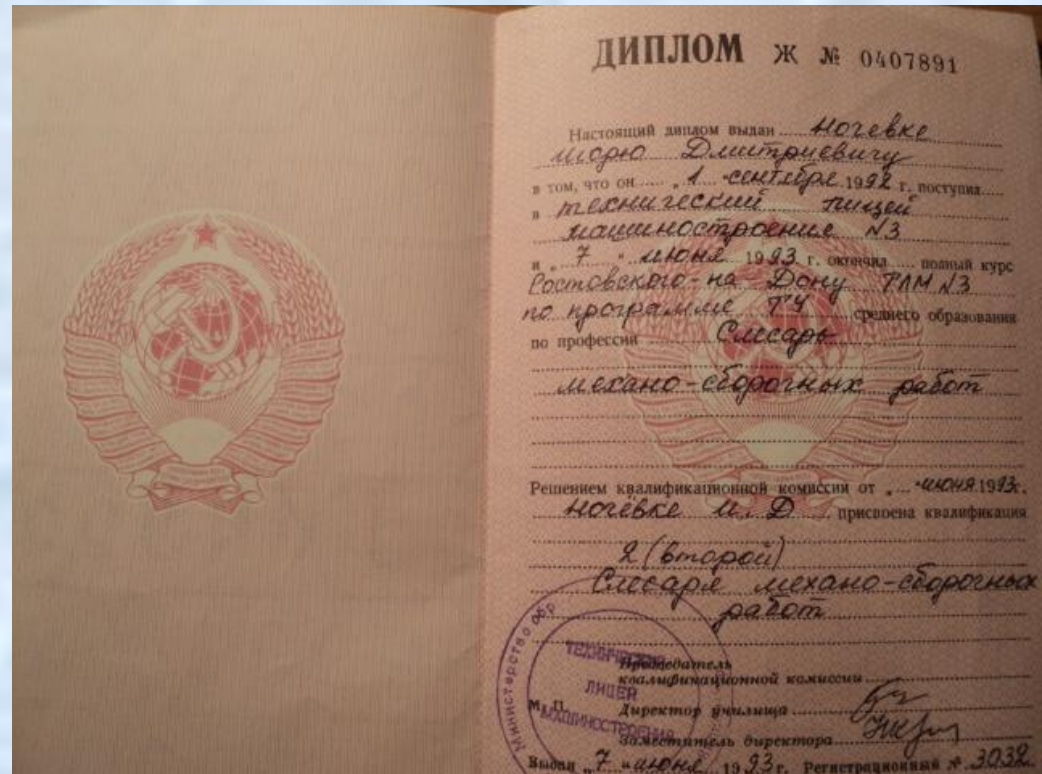 ДИПЛОМ Ж № 0407891
Настоящий диплом выдан Ночевке
Дмитриевичу
в том, что он „ 1 сентября 1992 г. поступил
в технический лицей
машиностроение N3
и „ 7 " июня 1993 г. окончил полный курс
Ростовского-на Дону ТЛМ N3
по программе ТУ среднего образования
по профессии Слесарь
механо-сборочных работ
Решением квалификационной комиссии от „ " июня 1993г.
Ночёвке И. Д присвоена квалификация
2 (второй)
Слесаря механо-сборочных
работ
Министерство обр
ТЕХНИЧЕСКИЙ
ЛИЦЕЙ
МАШИНОСТРОЕНИЯ
Председатель
квалификационной комиссии
М. П.
Директор училища
Заместитель директора
Выдан „ 7 " июня 1993г. Регистрационный № 3032